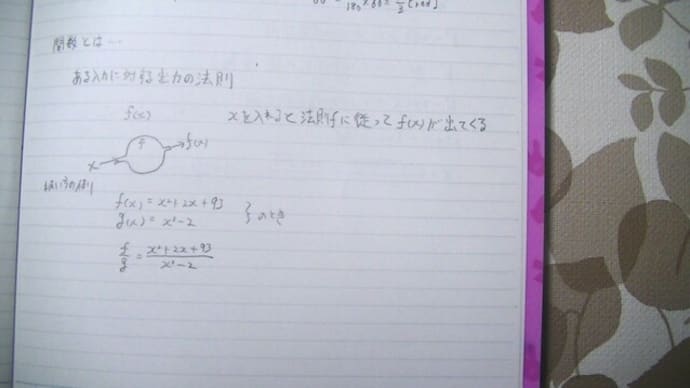 60 = π/180 × 60 = π/3 [rad]
関数とは…
ある入力に対する出力の法則
f(x)
xを入れると法則fに従ってf(x)が出てくる
f
x → → f(x)
使い方の例)
f(x) = x²+2x+93
g(x) = x²-2
} のとき
f/g = (x²+2x+93)/(x²-2)